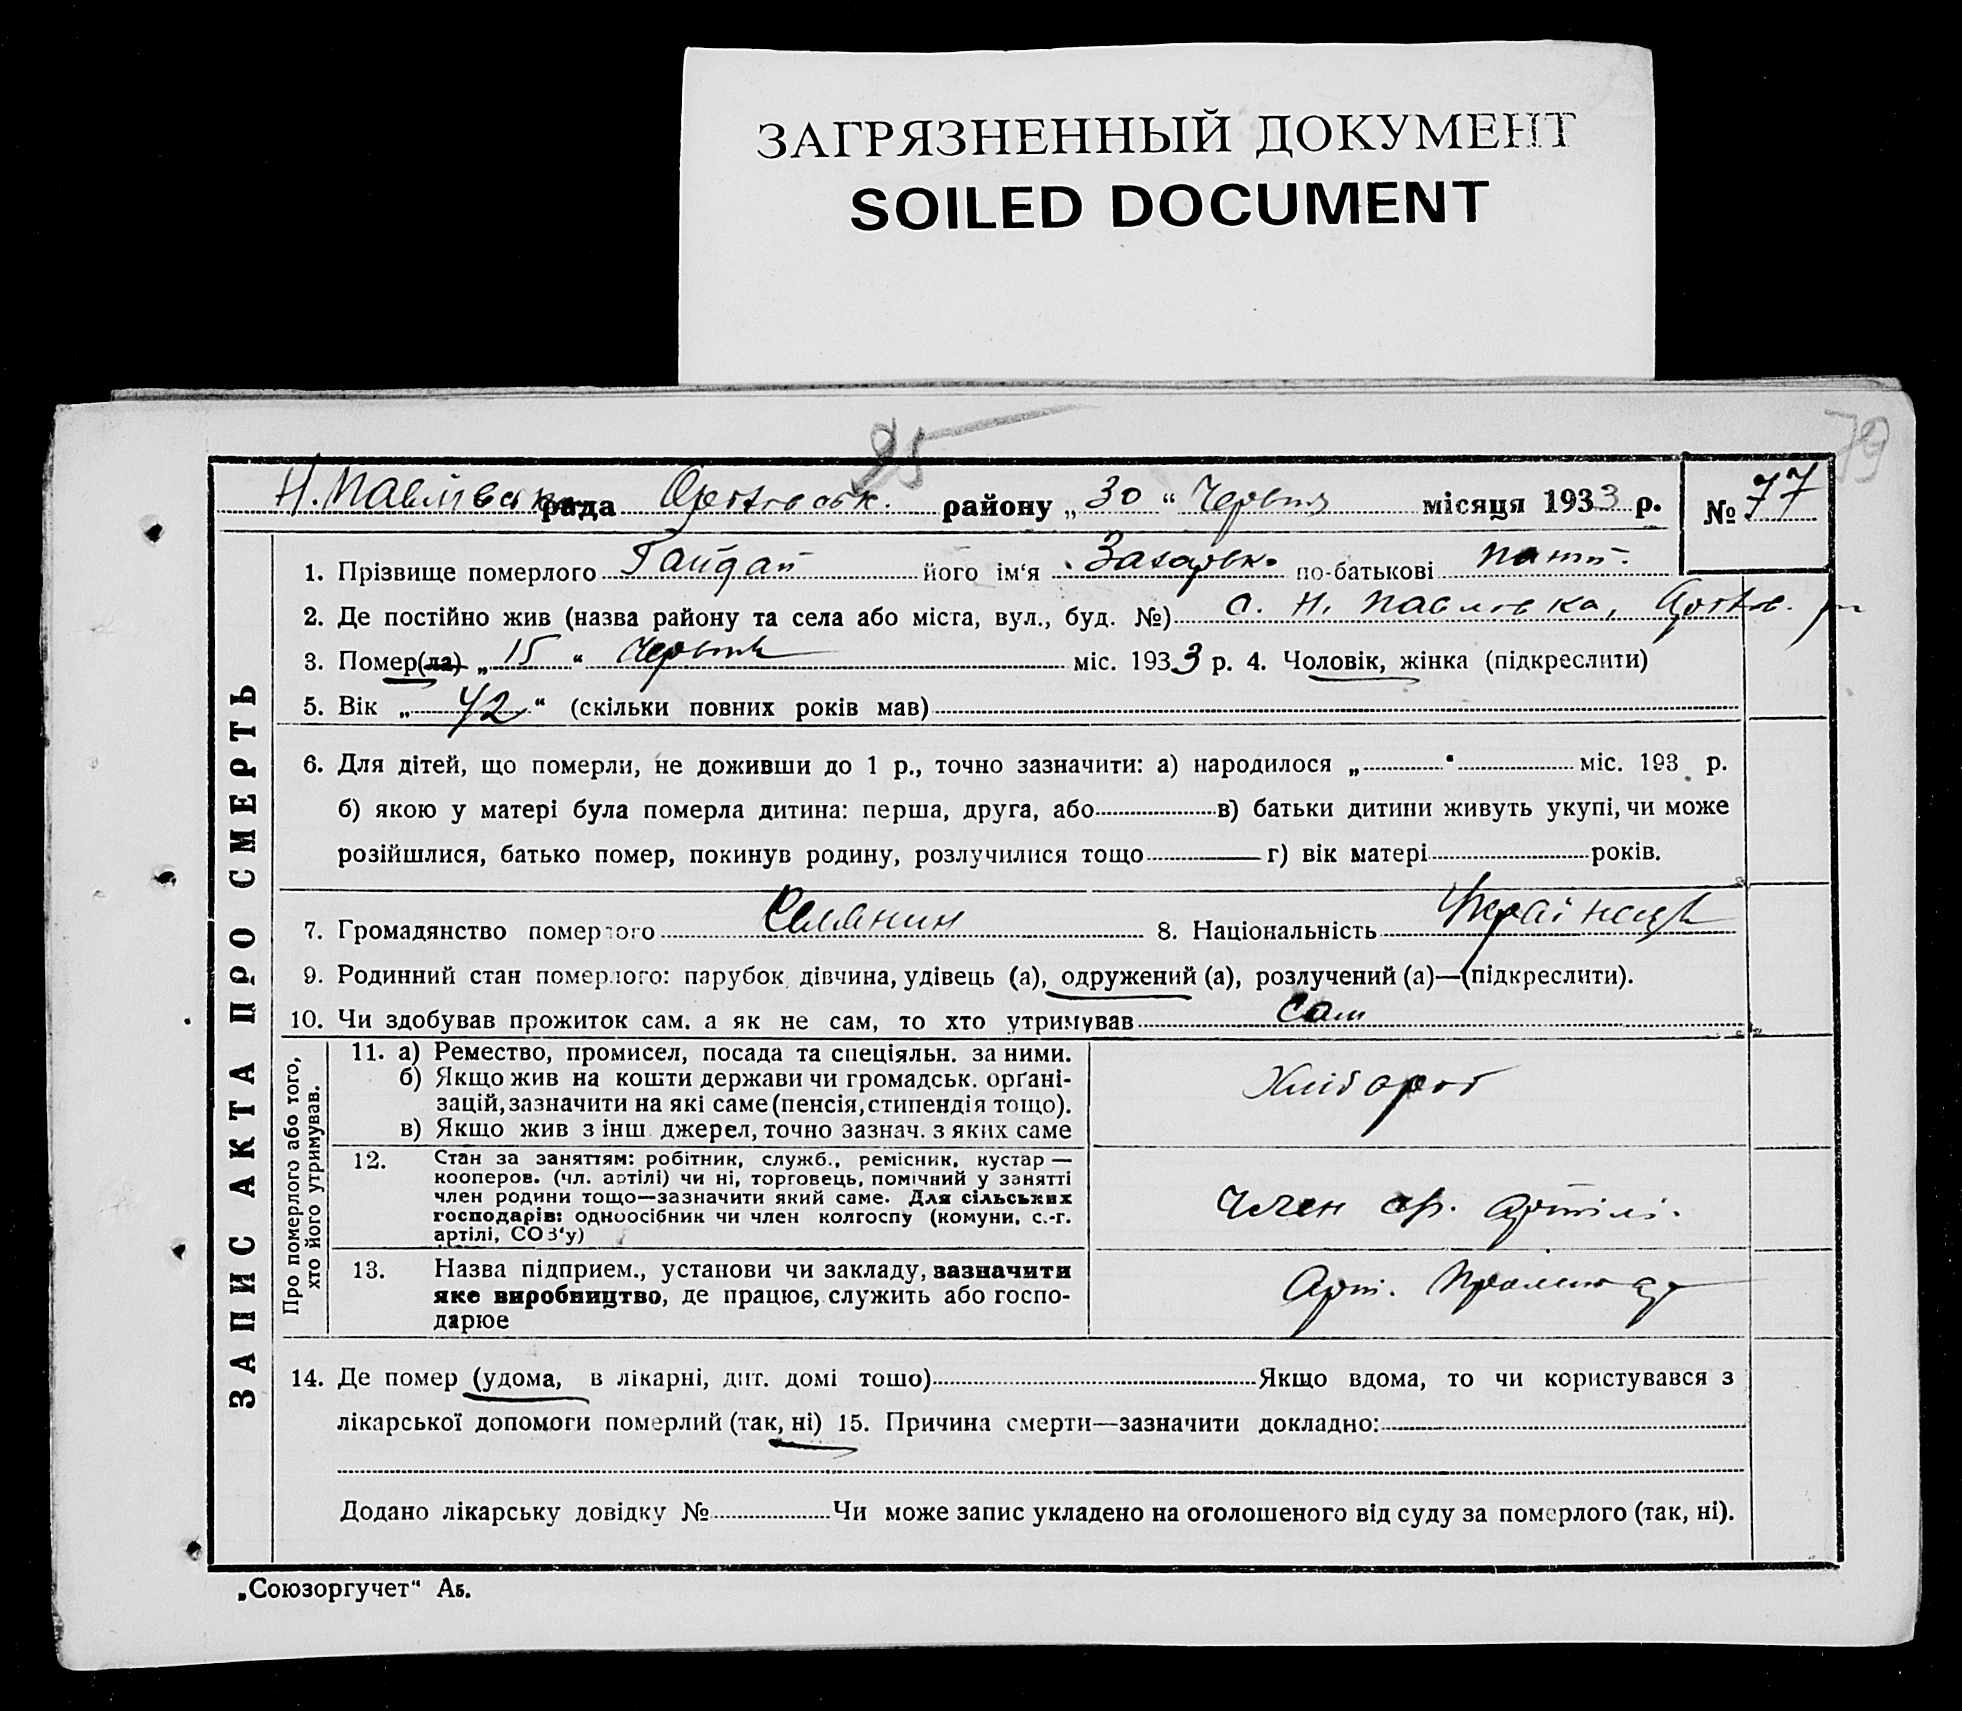 ЗАГРЯЗНЕННЫЙ ДОКУМЕНТ
SOILED DOCUMENT
79
95
Н. Павлівська рада Оріхівськ. району „30“ Червня місяця 1933 р. № 77
ЗАПИС АКТА ПРО СМЕРТЬ
1. Прізвище померлого Гайдай його ім‘я Захарько по-батькові
2. Де постійно жив (назва району та села або міста, вул., буд. №) с. Н. Павловка,
3. Помер(ла) „15“ Червня міс. 1933 р. 4. Чоловік, жінка (підкреслити)
5. Вік „42“ (скільки повних років мав)
6. Для дітей, що померли, не доживши до 1 р., точно зазначити: а) народилося „ “ міс. 193 р.
б) якою у матері була померла дитина: перша, друга, або в) батьки дитини живуть укупі, чи може
розійшлися, батько помер, покинув родину, розлучилися тощо г) вік матері років.
7. Громадянство померлого Селянин 8. Національність Українець
9. Родинний стан померлого: парубок, дівчина, удівець (а), одружений (а), розлучений (а)—(підкреслити).
10. Чи здобував прожиток сам, а як не сам, то хто утримував сам
Про померлого або того,
хто його утримував.
11. а) Ремество, промисел, посада та спеціяльн. за ними.
б) Якщо жив на кошти держави чи громадськ. орґані-
зацій, зазначити на які саме (пенсія, стипендія тощо).
в) Якщо жив з інш джерел, точно зазнач. з яких саме
Хлібороб
12. Стан за заняттям: робітник, служб., ремісник, кустар —
кооперов. (чл. артілі) чи ні, торговець, помічний у занятті
член родини тощо—зазначити який саме. Для сільських
господарів: одноосібник чи член колгоспу (комуни, с.-г.
артілі, СОЗ‘у)
Член ср. артілі.
13. Назва підприєм., установи чи закладу, зазначити
яке виробництво, де працює, служить або госпо-
дарює
Арт.
14. Де помер (удома, в лікарні, дит. домі тощо) Якщо вдома, то чи користувався з
лікарської допомоги померлий (так, ні) 15. Причина смерти—зазначити докладно:
Додано лікарську довідку № Чи може запис укладено на оголошеного від суду за померлого (так, ні).
„Союзоргучет“ Аб.